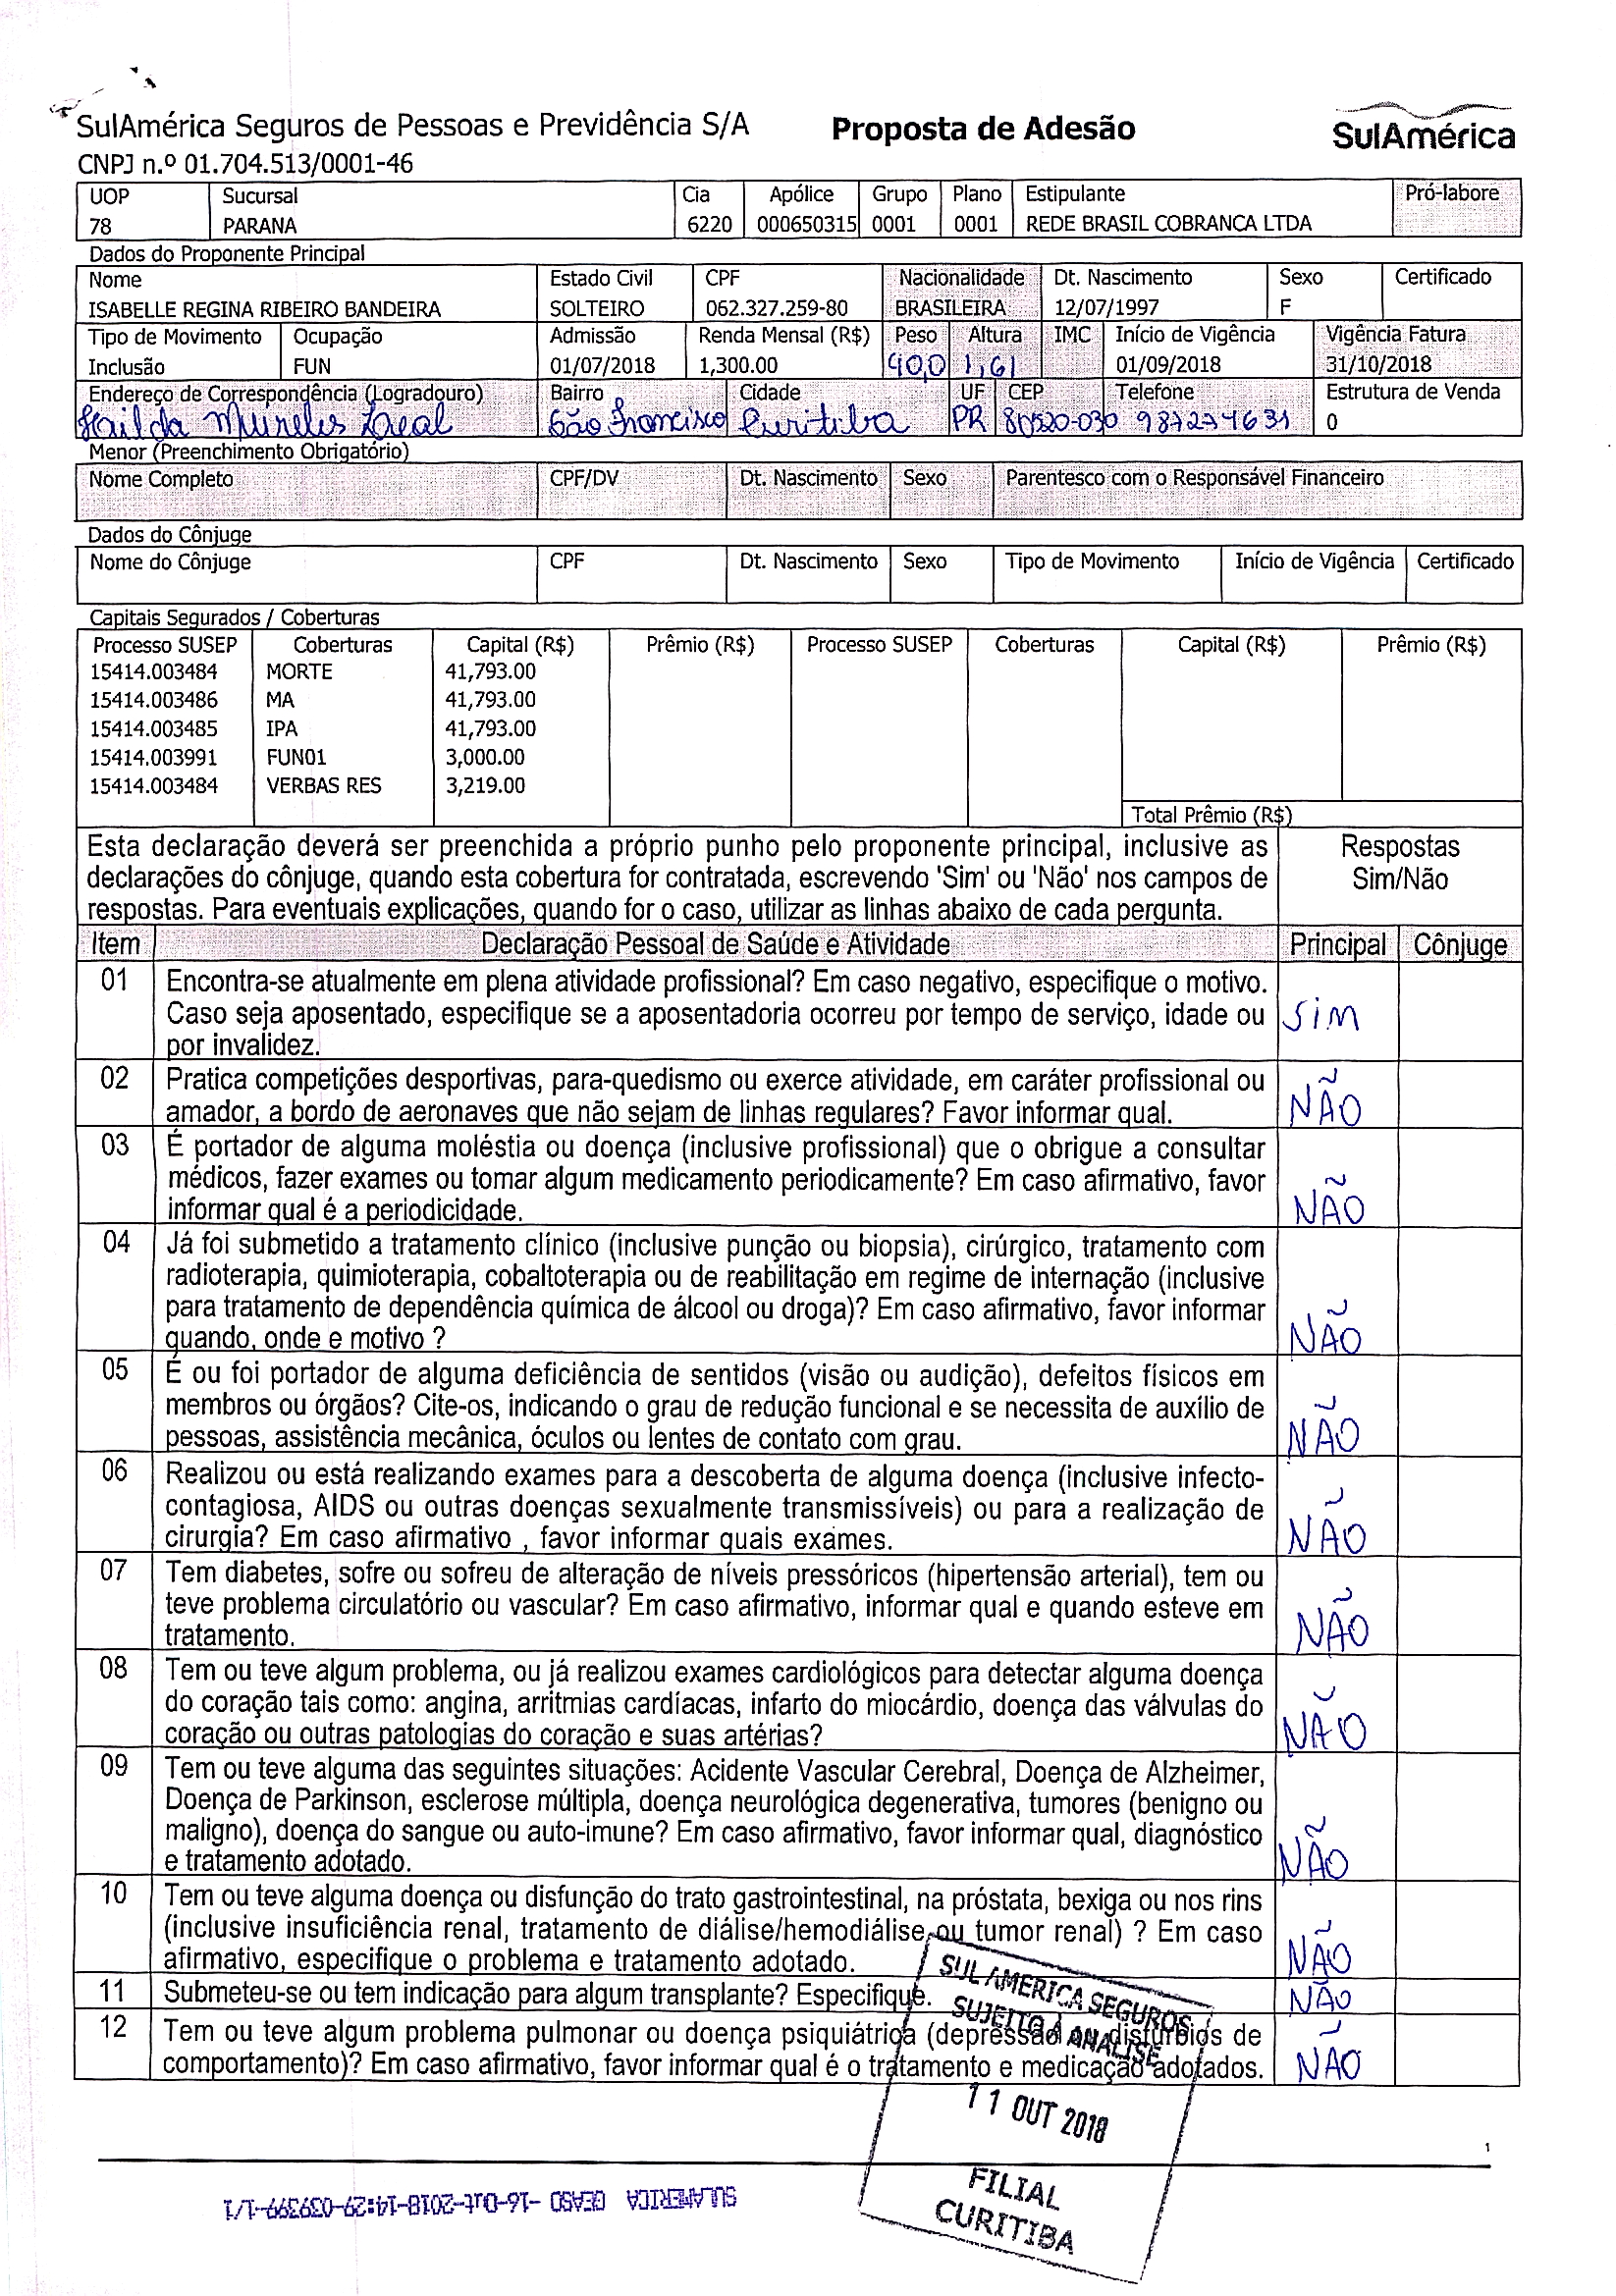 SulAmérica Seguros de Pessoas e Previdência S/A Proposta de Adesão SulAmérica
CNPJ n.º 01.704.513/0001-46
UOP Sucursal Cia Apólice Grupo Plano Estipulante Pró-labore
78 PARANA 6220 000650315 0001 0001 REDE BRASIL COBRANCA LTDA
Dados do Proponente Principal
Nome Estado Civil CPF Nacionalidade Dt. Nascimento Sexo Certificado
ISABELLE REGINA RIBEIRO BANDEIRA SOLTEIRO 062.327.259-80 BRASILEIRA 12/07/1997 F
Tipo de Movimento Ocupação Admissão Renda Mensal (R$) Peso Altura IMC Início de Vigência Vigência Fatura
Inclusão FUN 01/07/2018 1,300.00 40,0 1,61 01/09/2018 31/10/2018
Endereço de Correspondência (Logradouro) Bairro Cidade UF CEP Telefone Estrutura de Venda
São Francisco Curitiba PR 80520-030 0
Menor (Preenchimento Obrigatório)
Nome Completo CPF/DV Dt. Nascimento Sexo Parentesco com o Responsável Financeiro
Dados do Cônjuge
Nome do Cônjuge CPF Dt. Nascimento Sexo Tipo de Movimento Início de Vigência Certificado
Capitais Segurados / Coberturas
Processo SUSEP Coberturas Capital (R$) Prêmio (R$) Processo SUSEP Coberturas Capital (R$) Prêmio (R$)
15414.003484 MORTE 41,793.00
15414.003486 MA 41,793.00
15414.003485 IPA 41,793.00
15414.003991 FUN01 3,000.00
15414.003484 VERBAS RES 3,219.00
Total Prêmio (R$)
Esta declaração deverá ser preenchida a próprio punho pelo proponente principal, inclusive as Respostas
declarações do cônjuge, quando esta cobertura for contratada, escrevendo 'Sim' ou 'Não' nos campos de Sim/Não
respostas. Para eventuais explicações, quando for o caso, utilizar as linhas abaixo de cada pergunta.
Item Declaração Pessoal de Saúde e Atividade Principal Cônjuge
01 Encontra-se atualmente em plena atividade profissional? Em caso negativo, especifique o motivo.
Caso seja aposentado, especifique se a aposentadoria ocorreu por tempo de serviço, idade ou SIM
por invalidez.
02 Pratica competições desportivas, para-quedismo ou exerce atividade, em caráter profissional ou
amador, a bordo de aeronaves que não sejam de linhas regulares? Favor informar qual. NÃO
03 É portador de alguma moléstia ou doença (inclusive profissional) que o obrigue a consultar
médicos, fazer exames ou tomar algum medicamento periodicamente? Em caso afirmativo, favor
informar qual é a periodicidade. NÃO
04 Já foi submetido a tratamento clínico (inclusive punção ou biopsia), cirúrgico, tratamento com
radioterapia, quimioterapia, cobaltoterapia ou de reabilitação em regime de internação (inclusive
para tratamento de dependência química de álcool ou droga)? Em caso afirmativo, favor informar
quando, onde e motivo ? NÃO
05 É ou foi portador de alguma deficiência de sentidos (visão ou audição), defeitos físicos em
membros ou órgãos? Cite-os, indicando o grau de redução funcional e se necessita de auxílio de
pessoas, assistência mecânica, óculos ou lentes de contato com grau. NÃO
06 Realizou ou está realizando exames para a descoberta de alguma doença (inclusive infecto-
contagiosa, AIDS ou outras doenças sexualmente transmissíveis) ou para a realização de
cirurgia? Em caso afirmativo , favor informar quais exames. NÃO
07 Tem diabetes, sofre ou sofreu de alteração de níveis pressóricos (hipertensão arterial), tem ou
teve problema circulatório ou vascular? Em caso afirmativo, informar qual e quando esteve em
tratamento. NÃO
08 Tem ou teve algum problema, ou já realizou exames cardiológicos para detectar alguma doença
do coração tais como: angina, arritmias cardíacas, infarto do miocárdio, doença das válvulas do
coração ou outras patologias do coração e suas artérias? NÃO
09 Tem ou teve alguma das seguintes situações: Acidente Vascular Cerebral, Doença de Alzheimer,
Doença de Parkinson, esclerose múltipla, doença neurológica degenerativa, tumores (benigno ou
maligno), doença do sangue ou auto-imune? Em caso afirmativo, favor informar qual, diagnóstico
e tratamento adotado. NÃO
10 Tem ou teve alguma doença ou disfunção do trato gastrointestinal, na próstata, bexiga ou nos rins
(inclusive insuficiência renal, tratamento de diálise/hemodiálise ou tumor renal) ? Em caso
afirmativo, especifique o problema e tratamento adotado. NÃO
11 Submeteu-se ou tem indicação para algum transplante? Especifique. NÃO
12 Tem ou teve algum problema pulmonar ou doença psiquiátrica (depressão ou distúrbios de
comportamento)? Em caso afirmativo, favor informar qual é o tratamento e medicação adotados. NÃO
SUL AMERICA SEGUROS
SUJEITO À ANALISE
11 OUT 2018
FILIAL
CURITIBA
1
SULAMERICA GEASO -16-Out-2018-14:29-039399-1/1